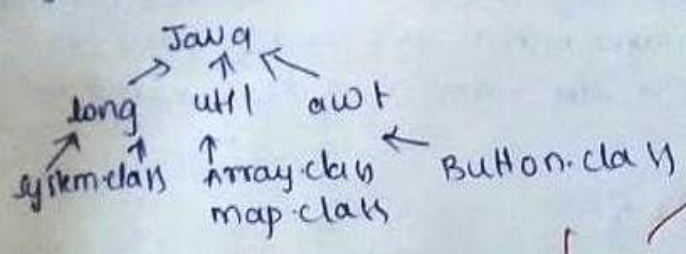 Java
long util awt
system.class Array.class Button.class
map.class